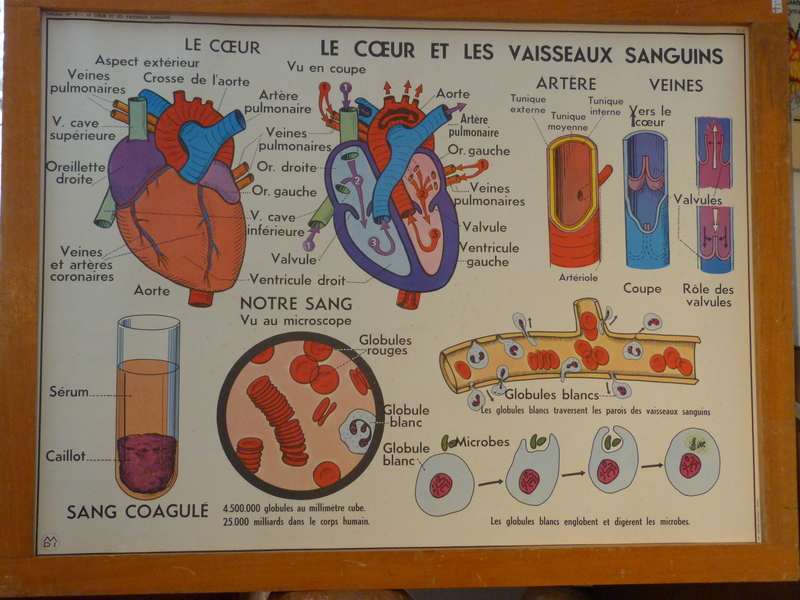 TABLEAU N° 9 - LE CŒUR ET LES VAISSEAUX SANGUINS
LE CŒUR
LE CŒUR ET LES VAISSEAUX SANGUINS
Aspect extérieur
Vu en coupe
Veines
pulmonaires
Crosse de l'aorte
V. cave
supérieure
Artère
pulmonaire
Oreillette
droite
Veines
pulmonaires
Or. droite
Or. gauche
V. cave
inférieure
Veines
et artères
coronaires
Aorte
Valvule
Ventricule droit
Aorte
Artère
pulmonaire
Or. gauche
Veines
pulmonaires
Valvule
Ventricule
gauche
1
1
1
1
2
2
3
3
ARTÈRE
Tunique
externe
Tunique
moyenne
Tunique
interne
Artériole
VEINES
Vers le
cœur
Valvules
Coupe
Rôle des
valvules
NOTRE SANG
Vu au microscope
Globules
rouges
Globule
blanc
Sérum
Caillot
SANG COAGULÉ
4.500.000 globules au millimètre cube.
25.000 milliards dans le corps humain.
Globules blancs
Les globules blancs traversent les parois des vaisseaux sanguins
Microbes
Globule
blanc
Les globules blancs englobent et digèrent les microbes.
MDI